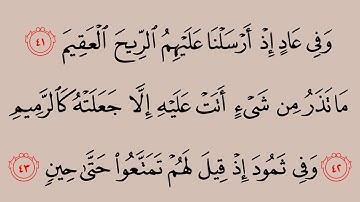 وَفِى عَادٍ إِذْ أَرْسَلْنَا عَلَيْهِمُ ٱلرِّيحَ ٱلْعَقِيمَ ٤١
مَا تَذَرُ مِن شَىْءٍ أَتَتْ عَلَيْهِ إِلَّا جَعَلَتْهُ كَٱلرَّمِيمِ
٤٢ وَفِى ثَمُودَ إِذْ قِيلَ لَهُمْ تَمَتَّعُوا۟ حَتَّىٰ حِينٍ ٤٣